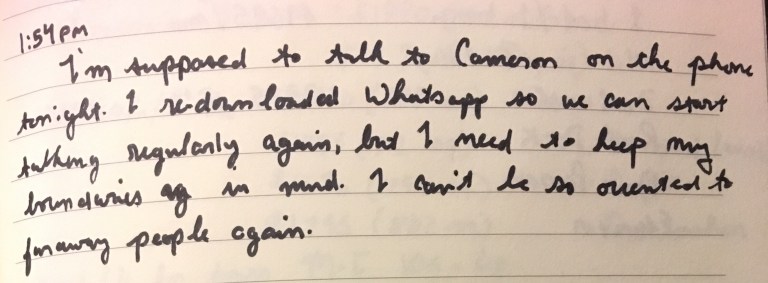 1:54 PM
I'm supposed to talk to Cameron on the phone
tonight. I re-downloaded Whatsapp so we can start
talking regularly again, but I need to keep my
boundaries in mind. I can't be so oriented to
faraway people again.